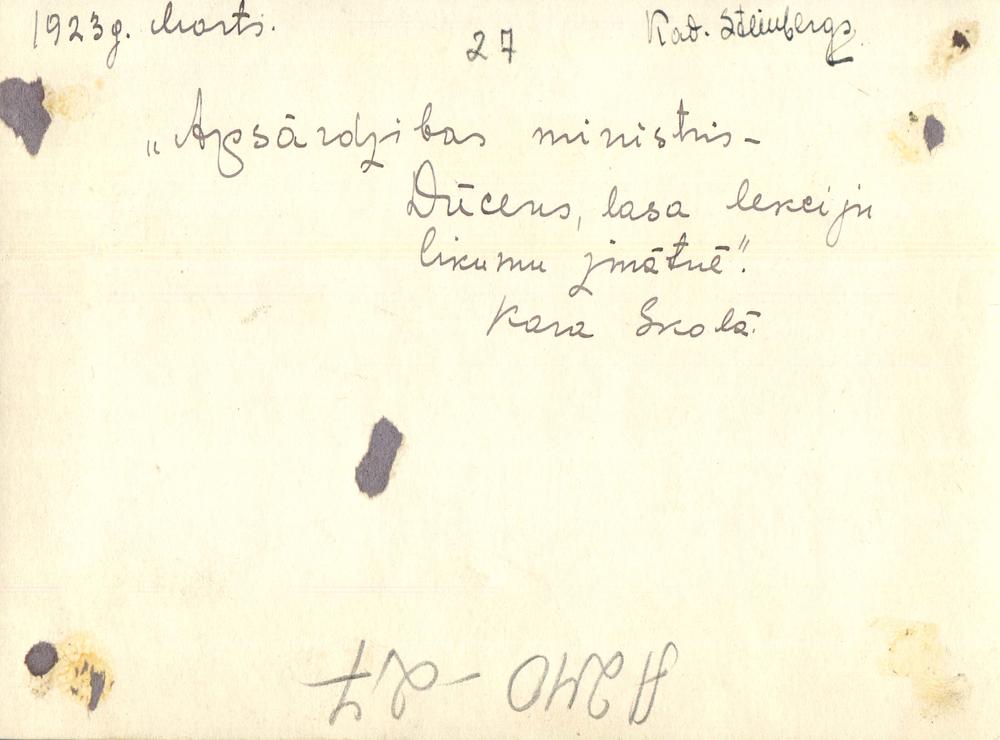 1923g. Marts.
27
Kad. Steinbergs
„Apsārdzības ministris-
Dūcens, lasa lekciju
likumu zinātnē".
Kara Skolā.
A240-27